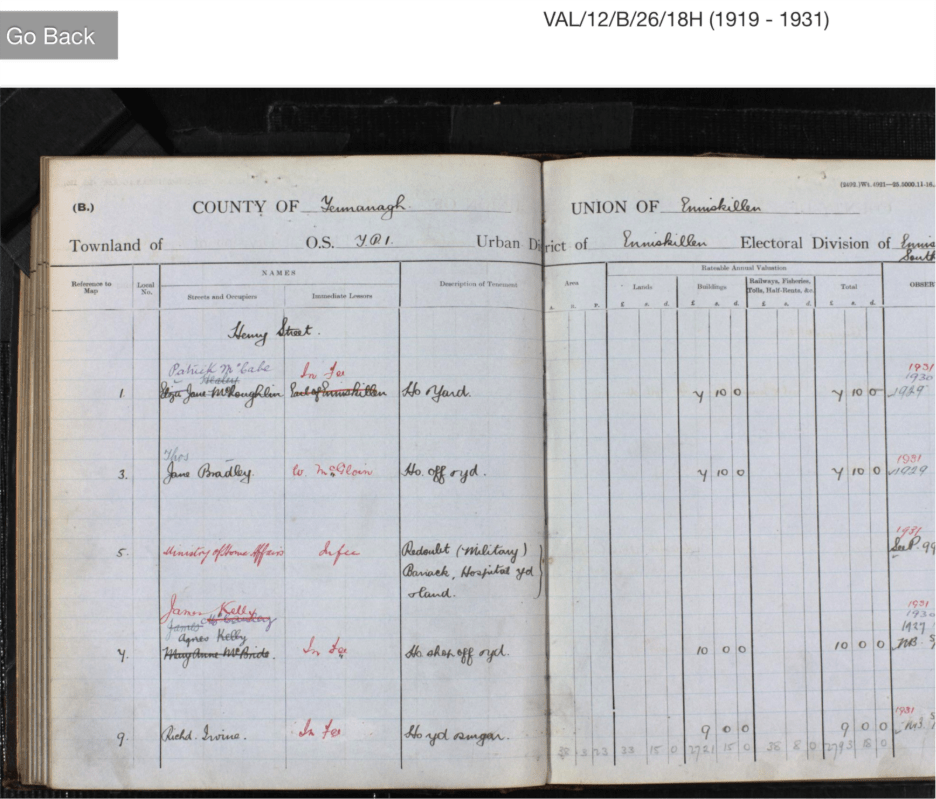 VAL/12/B/26/18H (1919 - 1931)
Go Back
(B.) COUNTY OF Fermanagh UNION OF Enniskillen
Townland of O.S. Urban District of Enniskillen Electoral Division of Ennis
South
NAMES Rateable Annual Valuation
Reference to Map Local No. Streets and Occupiers Immediate Lessors Description of Tenement Area Lands Buildings Railways, Fisheries, Tolls, Half-Rents, &c. Total OBSER
a. r. p. £ s. d. £ s. d. £ s. d. £ s. d.
Henry Street.
Patrick McCabe In Fee 1931
1930
1. Jane McLoughlin Earl of Enniskillen Ho Yard. 7 10 0 7 10 0 1929
Thos 1931
3. Jane Bradley. W. McGloin Ho. off & yd. 7 10 0 7 10 0 1929
1931
5. Ministry of Home Affairs In fee Redoubt (Military) See P. 99
Barrack, Hospital yd
& land.
James Kelly 1931
James 1930
Agnes Kelly 1927
7. Mary Anne McBride. In Fee Ho. shop off & yd. 10 0 0 10 0 0
1931
9. Richd. Irvine. In Fee Ho yd & 9 0 0 9 0 0
33 15 0 2721 15 0